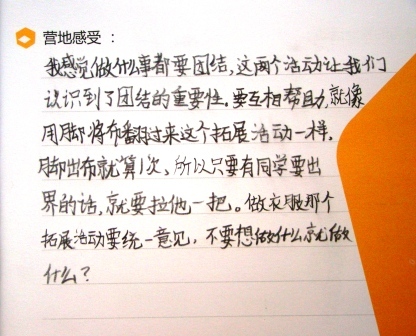 营地感受：
我感觉做什么事都要团结，这两个活动让我们
认识到了团结的重要性。要互相帮助，就像
用脚将布翻过来这个拓展活动一样，
脚出布就算1次，所以只要有同学要出
界的话，就要拉他一把。做衣服那个
拓展活动要统一意见，不要想做什么就做
什么？